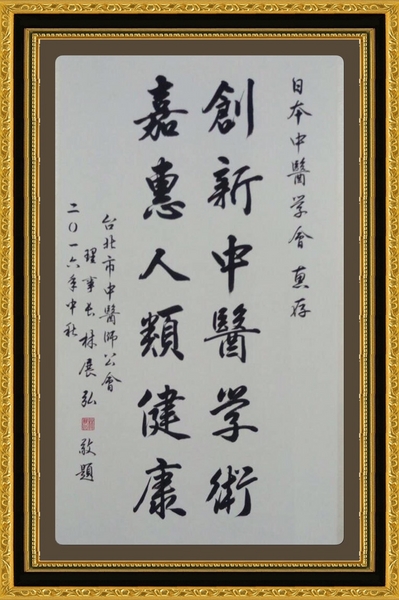 日本中醫学會 惠存
創新中醫学術
嘉惠人類健康
台北市中醫師公會
理事長 林展弘 敬題
二〇一六年中秋